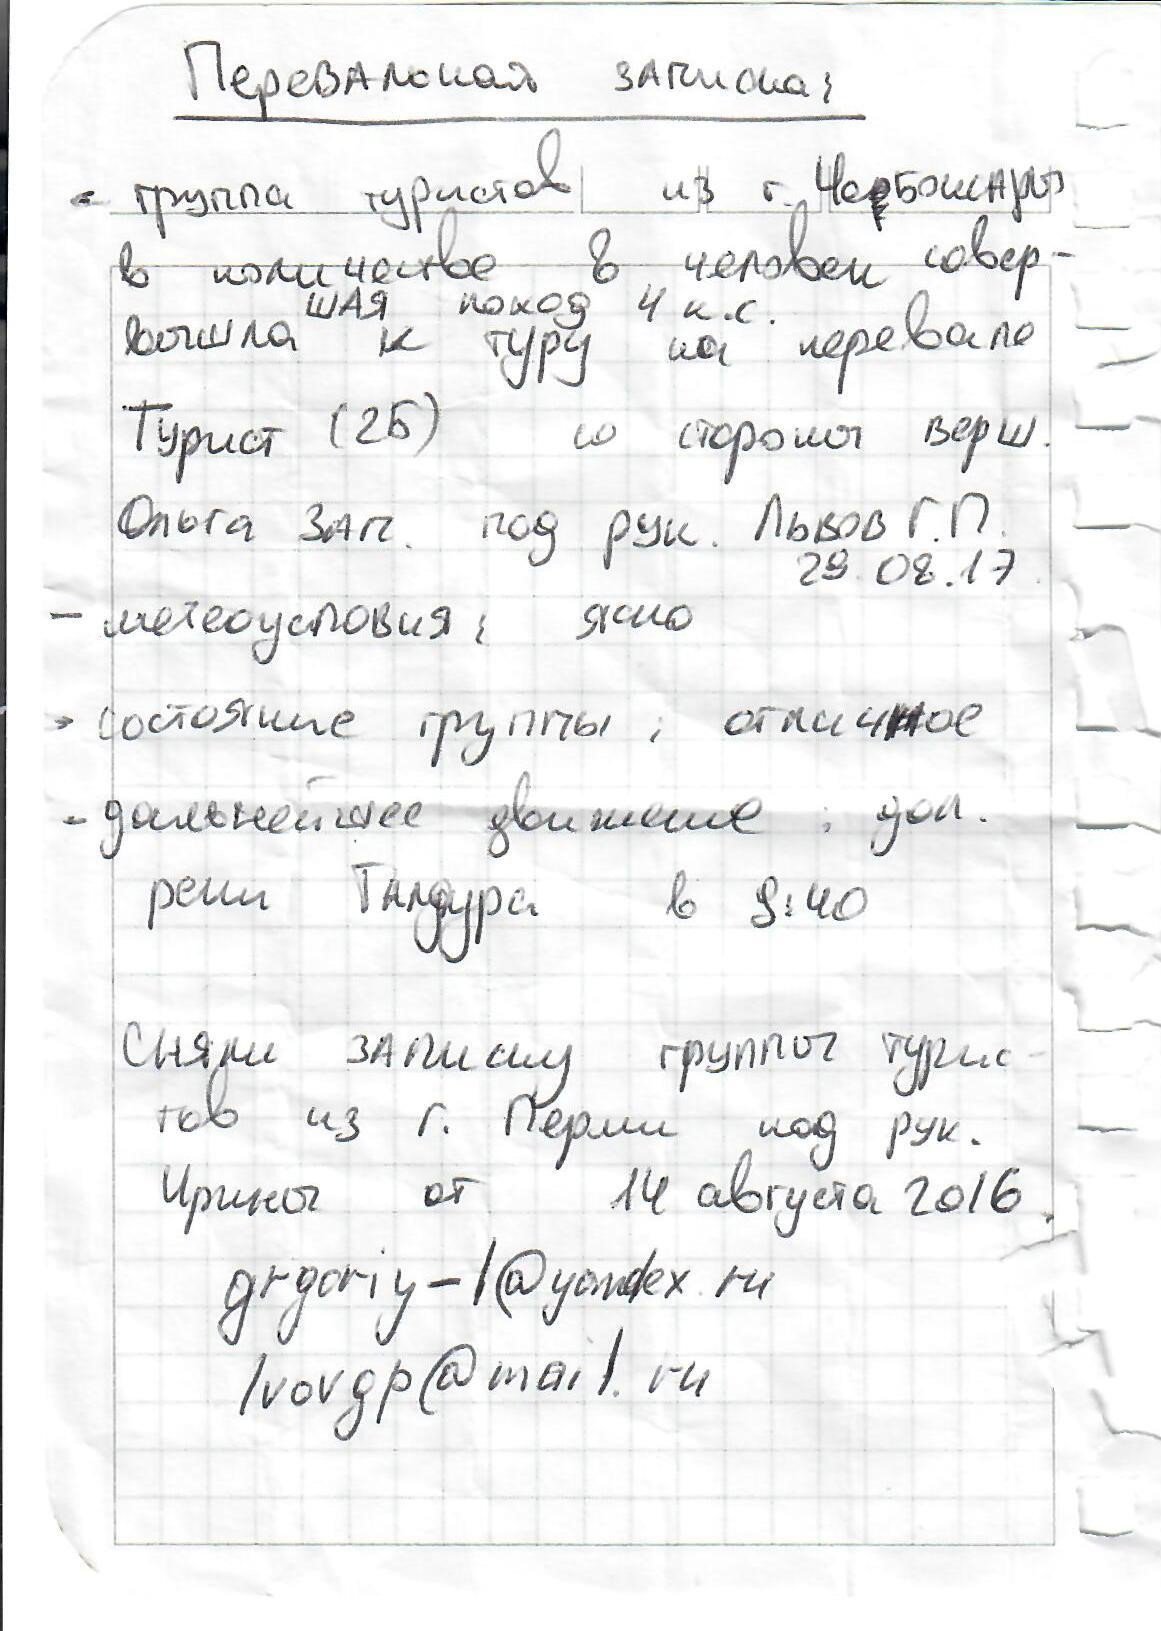 Перевальная записка:
- группа туристов из г. Чебоксары
в количестве 8 человек совер-
шая поход 4 к.с.
вышла к туру на перевале
Турист (2Б) со стороны верш.
Ольга Зап. под рук. Львов Г.П.
29.08.17
- метеоусловия: ясно
- состояние группы: отличное
- дальнейшее движение: дол.
реки Талдура в 9:40
Сняли записку группы турис-
тов из г. Перми под рук.
Ирины от 14 августа 2016
grgoriy-1@yandex.ru
lvovgp@mail.ru